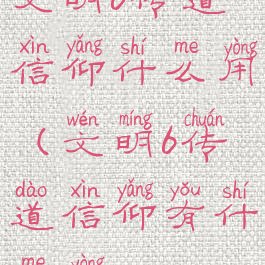 文明6传道
xìn yǎng shí me yòng
信仰什么用
wén míng chuán
(文明6传
dào xìn yǎng yǒu shí
道信仰有什
me yòng